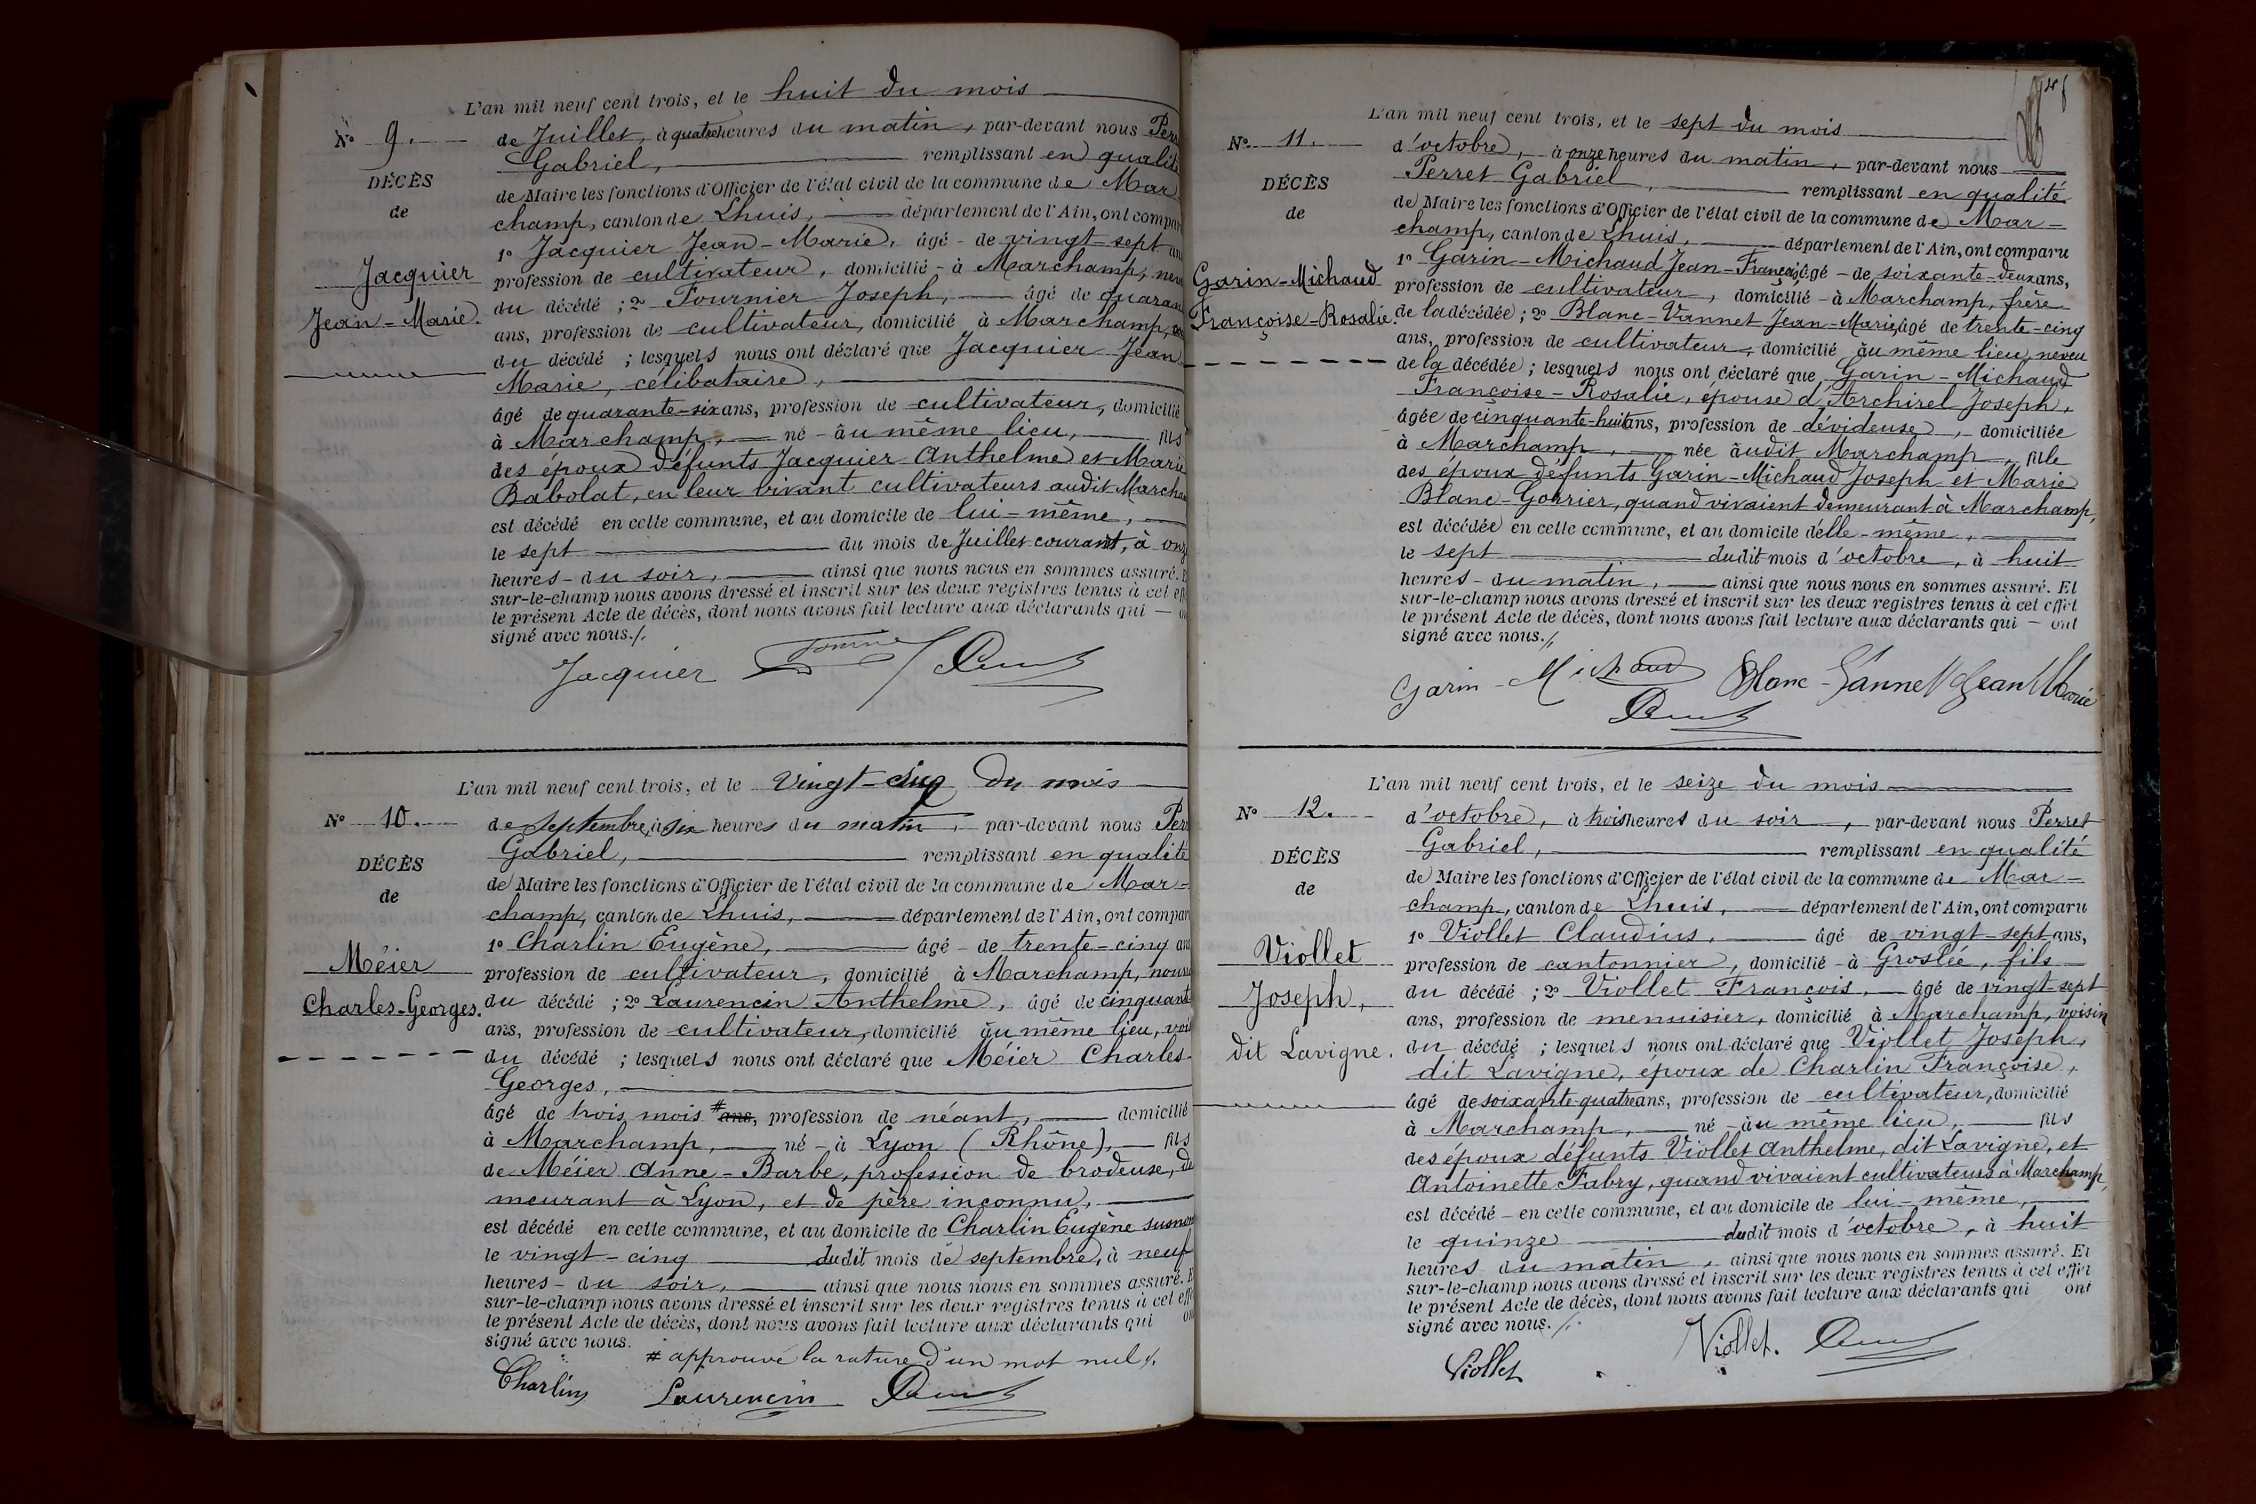 L'an mil neuf cent trois, et le huit du mois
N° 9.
de Juillet, à quatre heures du matin, par-devant nous Perr
Gabriel, remplissant en qualité
DÉCÈS
de Maire les fonctions d'Officier de l'état civil de la commune de Mar
de
champ, canton de Lhuis, département de l'Ain, ont compar
1° Jacquier Jean-Marie, âgé de vingt-sept ans
Jacquier
profession de cultivateur, domicilié à Marchamp, neve
Jean-Marie.
du décédé ; 2° Fournier Joseph, âgé de quarant
ans, profession de cultivateur, domicilié à Marchamp,
du décédé ; lesquels nous ont déclaré que Jacquier Jean
Marie, célibataire,
âgé de quarante-six ans, profession de cultivateur, domicilié
à Marchamp, né au même lieu, fils
des époux défunts Jacquier Anthelme et Marie
Babolat, en leur vivant cultivateurs audit Marcham
est décédé en cette commune, et au domicile de lui-même,
le sept du mois de Juillet courant, à onz
heures du soir, ainsi que nous nous en sommes assuré. E
sur-le-champ nous avons dressé et inscrit sur les deux registres tenus à cet eff
le présent Acte de décès, dont nous avons fait lecture aux déclarants qui on
signé avec nous./.
Jacquier
L'an mil neuf cent trois, et le vingt-cinq du mois
N° 10.
de septembre, à six heures du matin, par-devant nous Perr
Gabriel, remplissant en qualité
DÉCÈS
de Maire les fonctions d'Officier de l'état civil de la commune de Mar-
de
champ, canton de Lhuis, département de l'Ain, ont compar
1° Charlin Eugène, âgé de trente-cinq ans
Méier
profession de cultivateur, domicilié à Marchamp, nourr
Charles-Georges.
du décédé ; 2° Laurencin Anthelme, âgé de cinquante
ans, profession de cultivateur, domicilié au même lieu, vois
du décédé ; lesquels nous ont déclaré que Méier Charles-
Georges,
âgé de trois mois # ans, profession de néant, domicilié
à Marchamp, né à Lyon (Rhône), fils
de Méier Anne-Barbe, profession de brodeuse, de
meurant à Lyon, et de père inconnu,
est décédé en cette commune, et au domicile de Charlin Eugène susnom
le vingt-cinq dudit mois de septembre, à neuf
heures du soir, ainsi que nous nous en sommes assuré. E
sur-le-champ nous avons dressé et inscrit sur les deux registres tenus à cet effe
le présent Acte de décès, dont nous avons fait lecture aux déclarants qui on
signé avec nous.
# approuvé la rature d'un mot nul ./.
Charlin Laurencin
L'an mil neuf cent trois, et le sept du mois
N° 11.
d'octobre, à onze heures du matin, par-devant nous
Perret Gabriel, remplissant en qualité
DÉCÈS
de Maire les fonctions d'Officier de l'état civil de la commune de Mar-
de
champ, canton de Lhuis, département de l'Ain, ont comparu
1° Garin-Michaud Jean-François, âgé de soixante-deux ans,
Garin-Michaud
profession de cultivateur, domicilié à Marchamp, frère
Françoise-Rosalie.
de la décédée ; 2° Blanc-Vannet Jean-Marie, âgé de trente-cinq
ans, profession de cultivateur, domicilié au même lieu, neveu
de la décédée ; lesquels nous ont déclaré que Garin-Michaud
Françoise-Rosalie, épouse d'Archirel Joseph,
âgée de cinquante-huit ans, profession de dévideuse, domiciliée
à Marchamp, née audit Marchamp, fille
des époux défunts Garin-Michaud Joseph et Marie
Blanc-Gonrier, quand vivaient demeurant à Marchamp,
est décédée en cette commune, et au domicile d'elle-même,
le sept dudit mois d'octobre, à huit
heures du matin, ainsi que nous nous en sommes assuré. Et
sur-le-champ nous avons dressé et inscrit sur les deux registres tenus à cet effet
le présent Acte de décès, dont nous avons fait lecture aux déclarants qui ont
signé avec nous./.
Garin-Michaud Blanc-Vannet Jean Marie
L'an mil neuf cent trois, et le seize du mois
N° 12.
d'octobre, à trois heures du soir, par-devant nous Perret
Gabriel, remplissant en qualité
DÉCÈS
de Maire les fonctions d'Officier de l'état civil de la commune de Mar-
de
champ, canton de Lhuis, département de l'Ain, ont comparu
1° Viollet Claudius, âgé de vingt-sept ans,
Viollet
profession de cantonnier, domicilié à Groslée, fils
Joseph,
du décédé ; 2° Viollet François, âgé de vingt-sept
ans, profession de menuisier, domicilié à Marchamp, voisin
dit Lavigne.
du décédé ; lesquels nous ont déclaré que Viollet Joseph,
dit Lavigne, époux de Charlin Françoise,
âgé de soixante-quatre ans, profession de cultivateur, domicilié
à Marchamp, né au même lieu, fils
des époux défunts Viollet Anthelme, dit Lavigne, et
Antoinette Fabry, quand vivaient cultivateurs à Marchamp,
est décédé en cette commune, et au domicile de lui-même,
le quinze dudit mois d'octobre, à huit
heures du matin, ainsi que nous nous en sommes assuré. Et
sur-le-champ nous avons dressé et inscrit sur les deux registres tenus à cet effet
le présent Acte de décès, dont nous avons fait lecture aux déclarants qui ont
signé avec nous./.
Viollet Viollet.